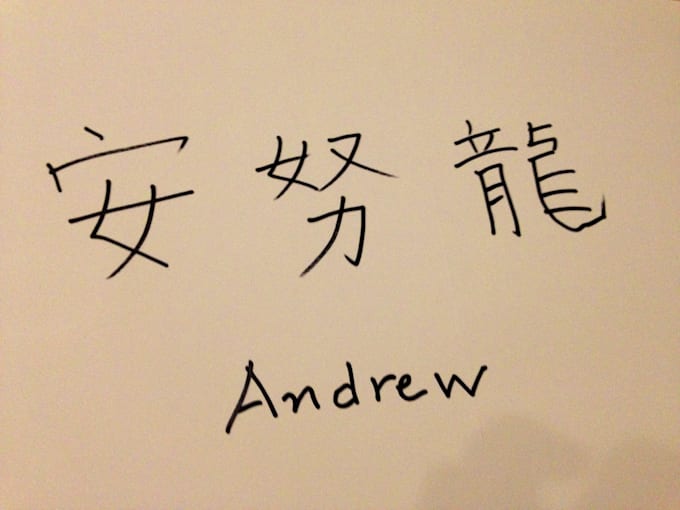 安努龍
Andrew